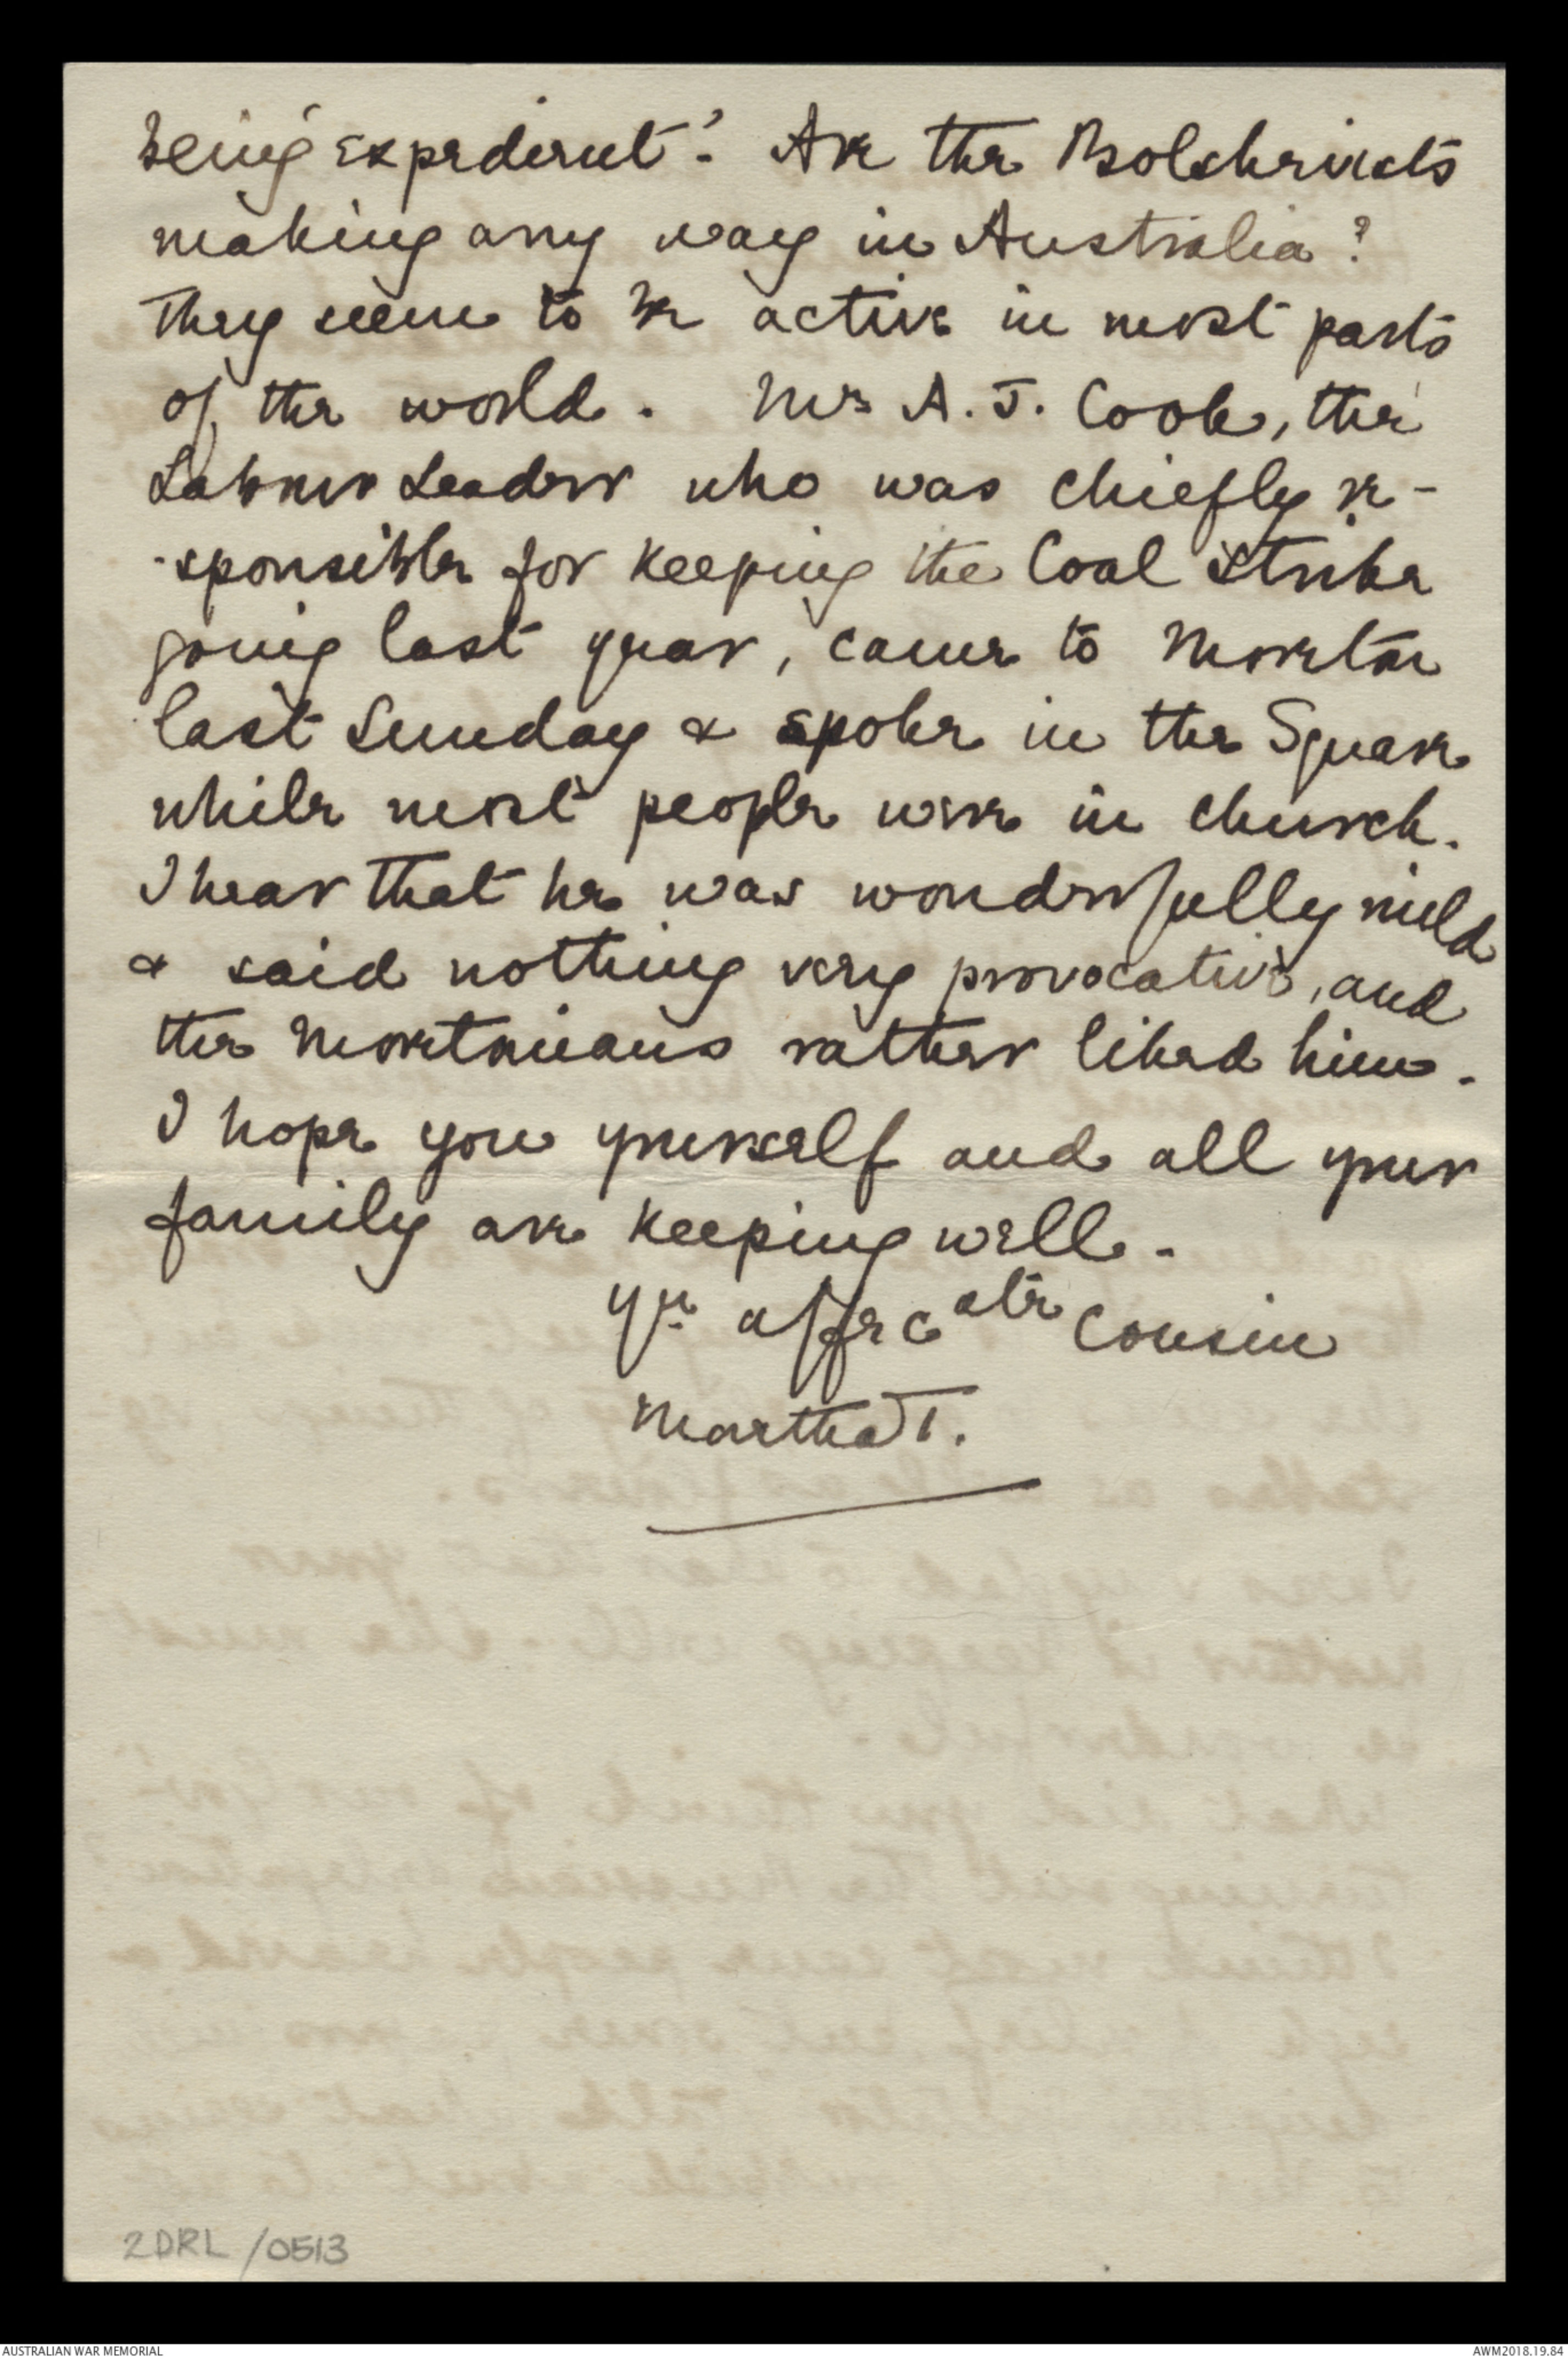 being expedient'. Are the Bolshevists
making any way in Australia?
They seem to be active in most parts
of the world. Mr A. J. Cook, the
Labour Leader who was chiefly re-
-sponsible for keeping the Coal Strike
going last year, came to Moreton
last Sunday & spoke in the Square
while most people were in church.
I hear that he was wonderfully mild
& said nothing very provocative, and
the Moretonians rather liked him.
I hope you yourself and all your
family are keeping well.
Yr affecate Cousin
Martha T.
2DRL/0513
AUSTRALIAN WAR MEMORIAL
AWM2018.19.84